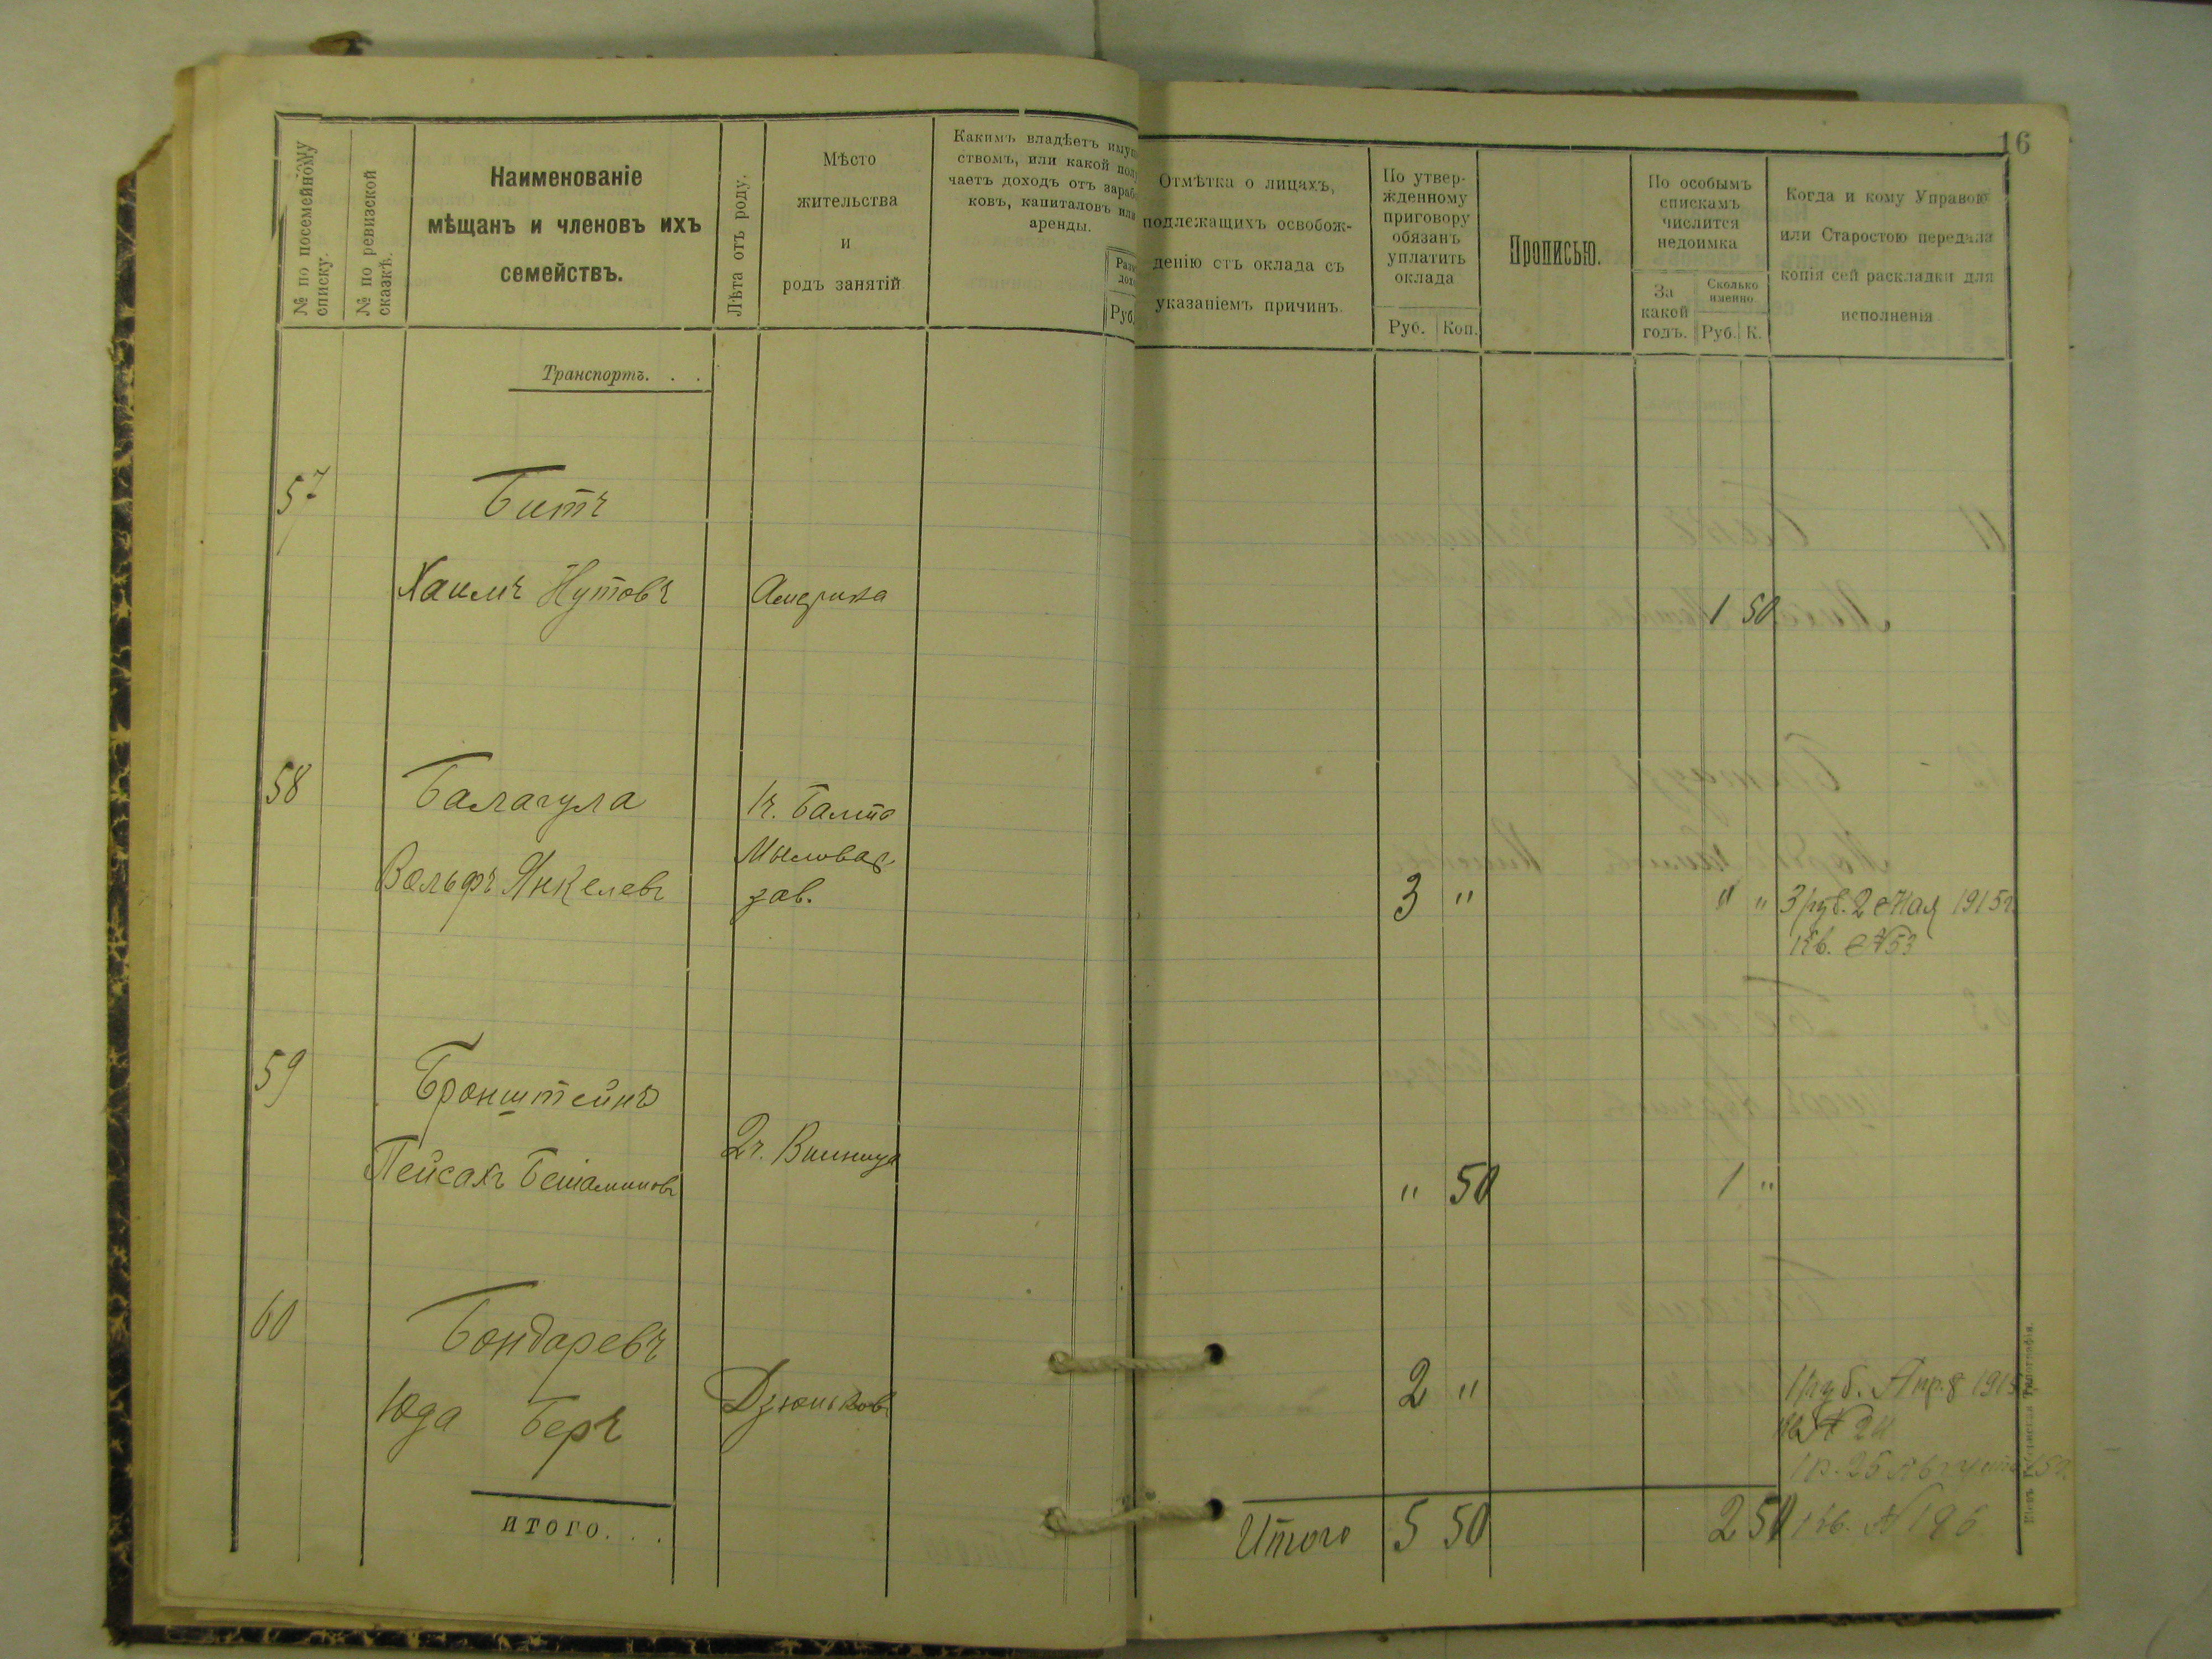 16
№ по посемейному
списку.
№ по ревизской
сказкѣ.
Наименованіе
мѣщанъ и членовъ ихъ
семействъ.
Лѣта отъ роду.
Мѣсто
жительства
и
родъ занятій
Какимъ владѣетъ имущ
ствомъ, или какой полу
чаетъ доходъ отъ зараб
ковъ, капиталовъ или
аренды.
Руб.
Отмѣтка о лицахъ,
подлежащихъ освобож-
денію отъ оклада съ
указаніемъ причинъ.
По утвер-
жденному
приговору
обязанъ
уплатить
оклада
Руб. Коп.
Прописью.
По особымъ
спискамъ
числится
недоимка
За
какой
годъ.
Сколько
именно
Руб. К.
Когда и кому Управою
или Старостою передана
копія сей раскладки для
исполненія
Транспортъ. . .
57 Битъ
Хаимъ Нутовъ Америка 1 50
58 Балагула 1ч. Балта
Вольфъ Янкелевъ Мыловар.
зав. 3 " " " 3 руб. 2 Мая 1915г.
Кв. №53
59 Бронштейнъ
Пейсахъ Беніаминовъ 2ч. Винница " 50 1 "
60 Бондаревъ
Юда Беръ Дзюньковъ 2 " 1 руб. Апр. 8 1915
Кв № 24
1 р. 25 Августа 15г.
итого. . .
Итого 5 50 2 50 Кв. № 196
Кіевъ Губернская Типографія.